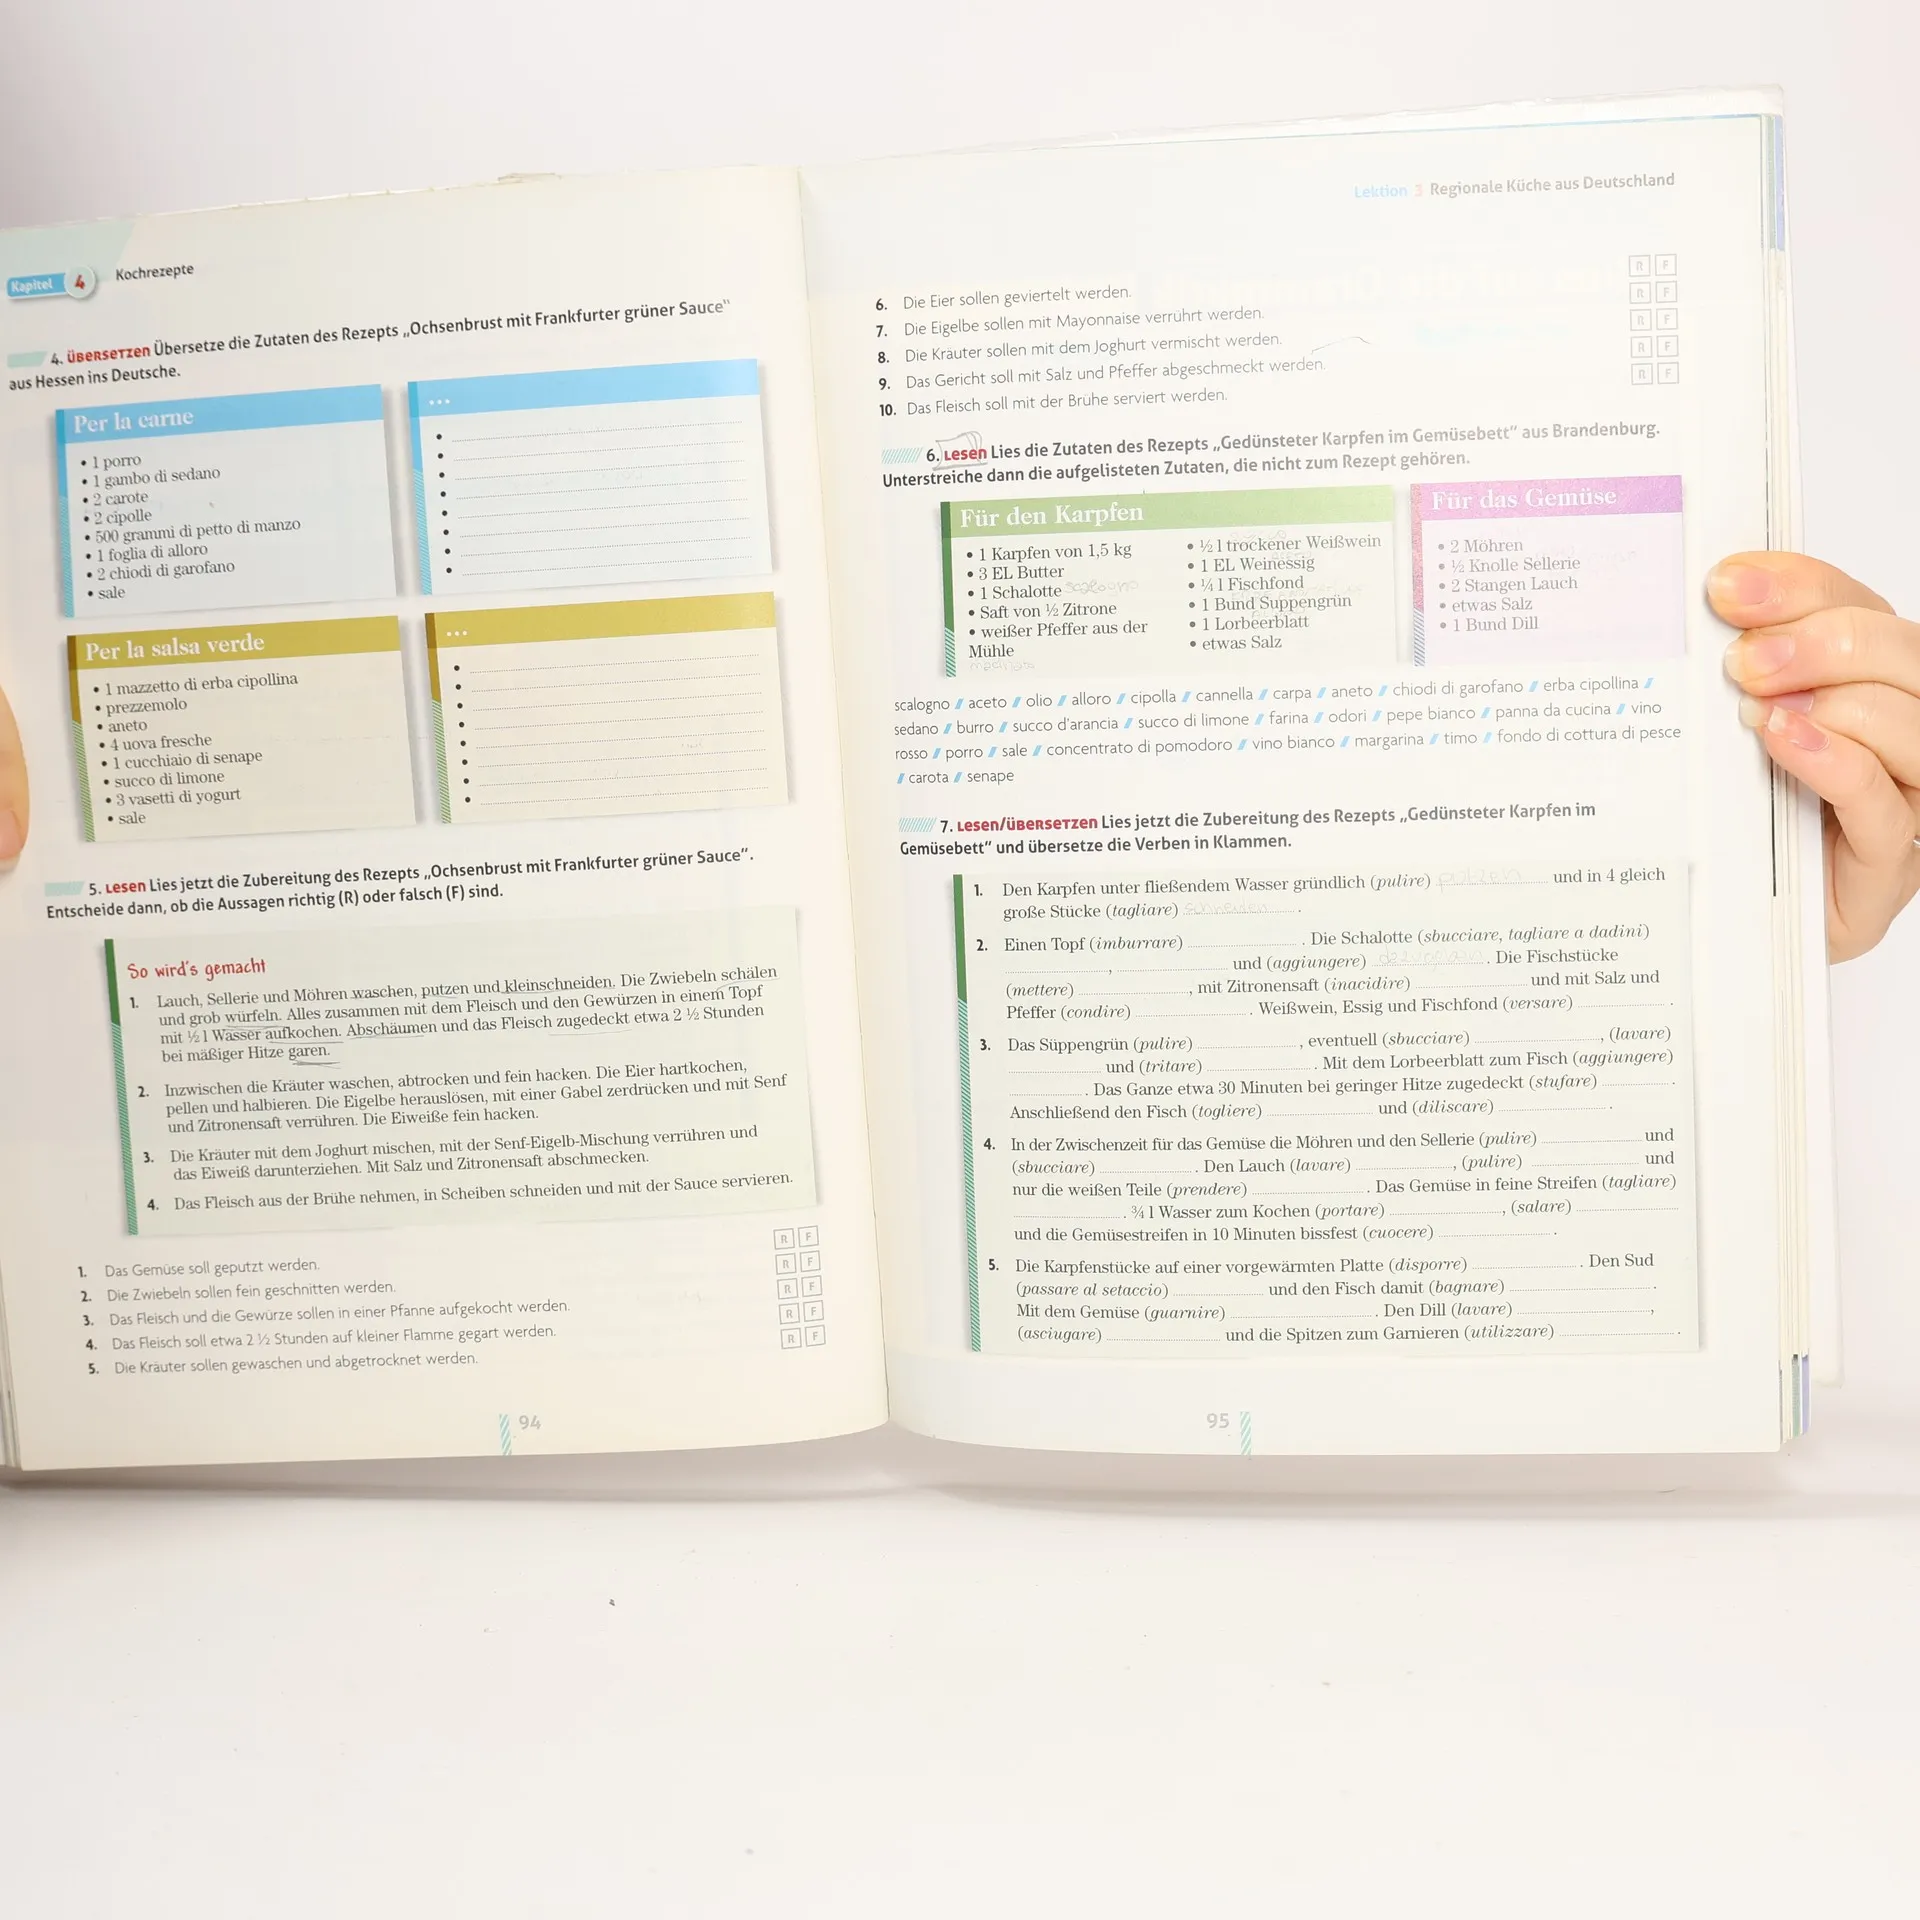 Kapitel 4 Kochrezepte
4. ÜBERSETZEN Übersetze die Zutaten des Rezepts „Ochsenbrust mit Frankfurter grüner Sauce"
aus Hessen ins Deutsche.
Per la carne
• 1 porro
• 1 gambo di sedano
• 2 carote
• 2 cipolle
• 500 grammi di petto di manzo
• 1 foglia di alloro
• 2 chiodi di garofano
• sale
...
Per la salsa verde
• 1 mazzetto di erba cipollina
• prezzemolo
• aneto
• 4 uova fresche
• 1 cucchiaio di senape
• succo di limone
• 3 vasetti di yogurt
• sale
...
5. LESEN Lies jetzt die Zubereitung des Rezepts „Ochsenbrust mit Frankfurter grüner Sauce".
Entscheide dann, ob die Aussagen richtig (R) oder falsch (F) sind.
So wird's gemacht
1. Lauch, Sellerie und Möhren waschen, putzen und kleinschneiden. Die Zwiebeln schälen
und grob würfeln. Alles zusammen mit dem Fleisch und den Gewürzen in einem Topf
mit ½ l Wasser aufkochen. Abschäumen und das Fleisch zugedeckt etwa 2 ½ Stunden
bei mäßiger Hitze garen.
2. Inzwischen die Kräuter waschen, abtrocken und fein hacken. Die Eier hartkochen,
pellen und halbieren. Die Eigelbe herauslösen, mit einer Gabel zerdrücken und mit Senf
und Zitronensaft verrühren. Die Eiweiße fein hacken.
3. Die Kräuter mit dem Joghurt mischen, mit der Senf-Eigelb-Mischung verrühren und
das Eiweiß darunterziehen. Mit Salz und Zitronensaft abschmecken.
4. Das Fleisch aus der Brühe nehmen, in Scheiben schneiden und mit der Sauce servieren.
1. Das Gemüse soll geputzt werden. R F
2. Die Zwiebeln sollen fein geschnitten werden. R F
3. Das Fleisch und die Gewürze sollen in einer Pfanne aufgekocht werden. R F
4. Das Fleisch soll etwa 2 ½ Stunden auf kleiner Flamme gegart werden. R F
5. Die Kräuter sollen gewaschen und abgetrocknet werden. R F
94
Lektion 3 Regionale Küche aus Deutschland
6. Die Eier sollen geviertelt werden. R F
7. Die Eigelbe sollen mit Mayonnaise verrührt werden. R F
8. Die Kräuter sollen mit dem Joghurt vermischt werden. R F
9. Das Gericht soll mit Salz und Pfeffer abgeschmeckt werden. R F
10. Das Fleisch soll mit der Brühe serviert werden. R F
6. LESEN Lies die Zutaten des Rezepts „Gedünsteter Karpfen im Gemüsebett" aus Brandenburg.
Unterstreiche dann die aufgelisteten Zutaten, die nicht zum Rezept gehören.
Für den Karpfen
• 1 Karpfen von 1,5 kg
• 3 EL Butter
• 1 Schalotte scalogno
• Saft von ½ Zitrone
• weißer Pfeffer aus der
Mühle
• ½ l trockener Weißwein
• 1 EL Weinessig
• ¼ l Fischfond
• 1 Bund Suppengrün
• 1 Lorbeerblatt
• etwas Salz
Für das Gemüse
• 2 Möhren
• ½ Knolle Sellerie
• 2 Stangen Lauch
• etwas Salz
• 1 Bund Dill
scalogno // aceto // olio // alloro // cipolla // cannella // carpa // aneto // chiodi di garofano // erba cipollina //
sedano // burro // succo d'arancia // succo di limone // farina // odori // pepe bianco // panna da cucina // vino
rosso // porro // sale // concentrato di pomodoro // vino bianco // margarina // timo // fondo di cottura di pesce
// carota // senape
7. LESEN/ÜBERSETZEN Lies jetzt die Zubereitung des Rezepts „Gedünsteter Karpfen im
Gemüsebett" und übersetze die Verben in Klammen.
1. Den Karpfen unter fließendem Wasser gründlich (pulire) putzen und in 4 gleich
große Stücke (tagliare) schneiden .
2. Einen Topf (imburrare) . Die Schalotte (sbucciare, tagliare a dadini)
, und (aggiungere) . Die Fischstücke
(mettere) , mit Zitronensaft (inacidire) und mit Salz und
Pfeffer (condire) . Weißwein, Essig und Fischfond (versare) .
3. Das Süppengrün (pulire) , eventuell (sbucciare) , (lavare)
und (tritare) . Mit dem Lorbeerblatt zum Fisch (aggiungere)
. Das Ganze etwa 30 Minuten bei geringer Hitze zugedeckt (stufare) .
Anschließend den Fisch (togliere) und (diliscare) .
4. In der Zwischenzeit für das Gemüse die Möhren und den Sellerie (pulire) und
(sbucciare) . Den Lauch (lavare) , (pulire) und
nur die weißen Teile (prendere) . Das Gemüse in feine Streifen (tagliare)
. ¾ l Wasser zum Kochen (portare) , (salare)
und die Gemüsestreifen in 10 Minuten bissfest (cuocere) .
5. Die Karpfenstücke auf einer vorgewärmten Platte (disporre) . Den Sud
(passare al setaccio) und den Fisch damit (bagnare) .
Mit dem Gemüse (guarnire) . Den Dill (lavare) ,
(asciugare) und die Spitzen zum Garnieren (utilizzare) .
95